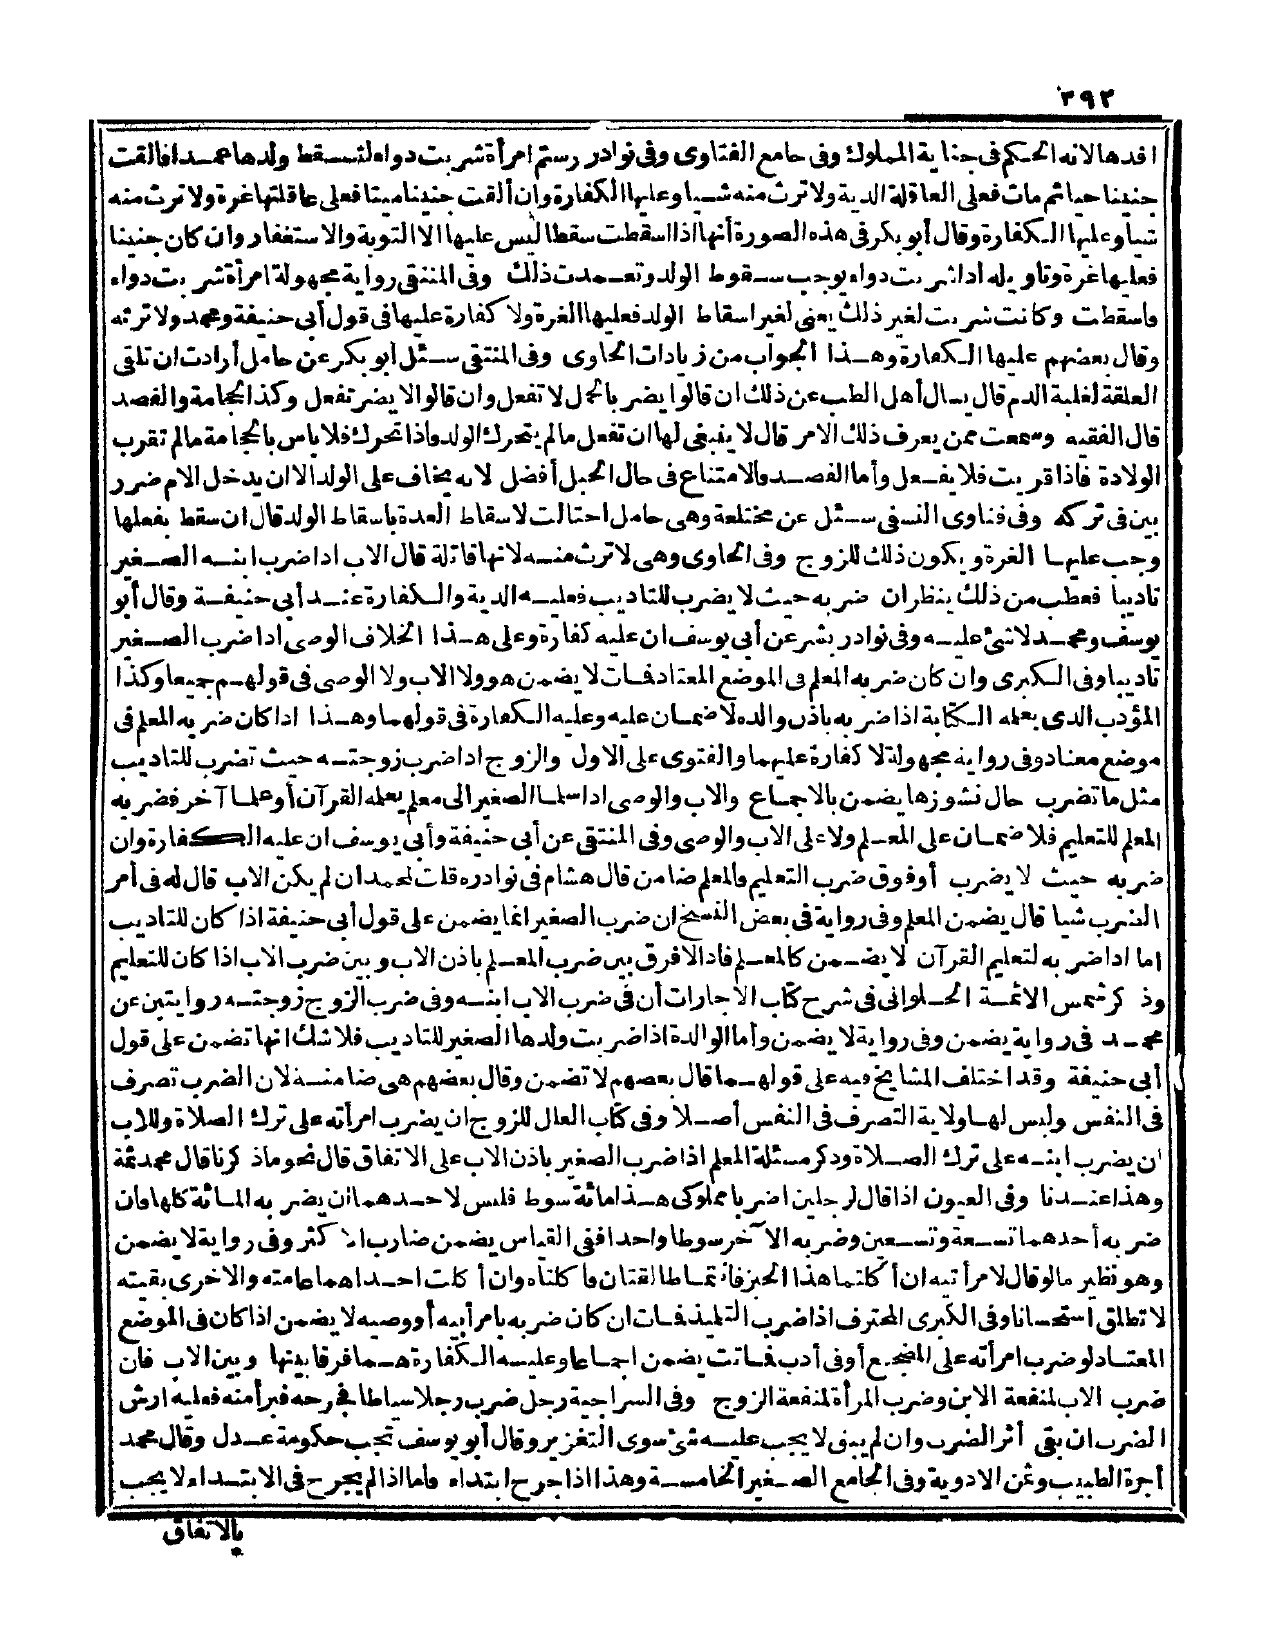 ٣٩٢
افدها لانه الحكم فى جناية المملوك وفى جامع الفتاوى وفى نوادر رستم امرأة شربت دواء لتسقط ولدها عمدا فالقت
جنينا حيا ثم مات فعلى العاقلة الدية ولا ترث منه شيا وعليها الكفارة وان ألقت جنينا ميتا فعلى عاقلتها غرة ولا ترث منه
شيأ وعليها الكفارة وقال أبو بكر فى هذه الصورة أنها اذا اسقطت سقطا ليس عليها الا التوبة والاستغفار وان كان جنينا
فعليها غرة وتاويله اذا شربت دواء يوجب سقوط الولد وتعمدت ذلك وفى المنتقى رواية مجهولة امرأة شربت دواء
فاسقطت وكانت شربت لغير ذلك يعنى لغير اسقاط الولد فعليها الغرة ولا كفارة عليها فى قول أبى حنيفة ومحمد ولا ترثه
وقال بعضهم عليها الكفارة وهذا الجواب من زيادات الحاوى وفى المنتقى سئل أبو بكر عن حامل أرادت ان تلقى
العلقة لغلبة الدم قال يسال أهل الطب عن ذلك ان قالوا يضر بالحمل لا تفعل وان قالوا لا يضر تفعل وكذا الحجامة والفصد
قال الفقيه وسمعت ممن يعرف ذلك الامر قال لا ينبغى لها ان تفعل مالم يتحرك الولد واذا تحرك فلا باس بالحجامة مالم تقرب
الولادة فاذا قربت فلا يفعل وأما الفصد فالامتناع فى حال الحبل أفضل لانه يخاف على الولد الا ان يدخل الام ضرر
بين فى تركه وفى فتاوى النسفى سئل عن مختلعة وهى حامل احتالت لاسقاط العدة باسقاط الولد قال ان سقط بفعلها
وجب عليها الغرة ويكون ذلك للزوج وفى الحاوى وهى لا ترث منه لانها قاتلة قال الاب اذا ضرب ابنه الصغير
تاديبا فعطب من ذلك ينظر ان ضربه حيث لا يضرب للتاديب فعليه الدية والكفارة عند أبى حنيفة وقال أبو
يوسف ومحمد لا شئ عليه وفى نوادر بشر عن أبى يوسف ان عليه كفارة وعلى هذا الخلاف الوصى اذا ضرب الصغير
تاديبا وفى الكبرى وان كان ضربه المعلم فى الموضع المعتاد فمات لا يضمن هو ولا الاب ولا الوصى فى قولهم جميعا وكذا
المؤدب الذى يعلمه الكتابة اذا ضربه باذن والده لا ضمان عليه وعليه الكفارة فى قولهما وهذا اذا كان ضربه المعلم فى
موضع معتاد وفى رواية مجهولة لا كفارة عليهما والفتوى على الاول والزوج اذا ضرب زوجته حيث تضرب للتاديب
مثل ما تضرب حال نشوزها يضمن بالاجماع والاب والوصى اذا سلما الصغير الى معلم يعلمه القرآن أو علما آخر فضربه
المعلم للتعليم فلا ضمان على المعلم ولا على الاب والوصى وفى المنتقى عن أبى حنيفة وأبى يوسف ان عليه الكفارة وان
ضربه حيث لا يضرب أو فوق ضرب التعليم فالمعلم ضامن قال هشام فى نوادره قلت لمحمد ان لم يكن الاب قال له فى أمر
الضرب شيا قال يضمن المعلم وفى رواية فى بعض النسخ ان ضرب الصغير انما يضمن على قول أبى حنيفة اذا كان للتاديب
اما اذا ضربه لتعليم القرآن لا يضمن كالمعلم فاذا لا فرق بين ضرب المعلم باذن الاب وبين ضرب الاب اذا كان للتعليم
وذكر شمس الائمة الحلوانى فى شرح كتاب الاجارات أن فى ضرب الاب ابنه وفى ضرب الزوج زوجته روايتين عن
محمد فى رواية يضمن وفى رواية لا يضمن وأما الوالدة اذا ضربت ولدها الصغير للتاديب فلا شك انها تضمن على قول
أبى حنيفة وقد اختلف المشايخ فيه على قولهما قال بعضهم لا تضمن وقال بعضهم هى ضامنة لان الضرب تصرف
فى النفس وليس لها ولاية التصرف فى النفس أصلا وفى كتاب العلل للزوج ان يضرب امرأته على ترك الصلاة وللاب
ان يضرب ابنه على ترك الصلاة وذكر مسئلة المعلم اذا ضرب الصغير باذن الاب على الاتفاق قال نحو ماذكرنا قال محمد ثمة
وهذا عندنا وفى العيون اذا قال لرجلين اضربا مملوكى هذا مائة سوط فليس لاحدهما ان يضربه المائة كلها فان
ضربه أحدهما تسعة وتسعين وضربه الآخر سوطا واحدا ففى القياس يضمن ضارب الاكثر وفى رواية لا يضمن
وهو نظير مالو قال لامرأتيه ان أكلتما هذا الخبز فانتما طالقتان فاكلتاه وان أكلت احداهما عامته والاخرى بقيته
لا تطلق استحسانا وفى الكبرى المحترف اذا ضرب التلميذ فمات ان كان ضربه بامر أبيه أو وصيه لا يضمن اذا كان فى الموضع
المعتاد لو ضرب امرأته على المضجع أو فى أدب فماتت يضمن اجماعا وعليه الكفارة هما فرقا بينها وبين الاب فان
ضرب الاب لمنفعة الابن وضرب المرأة لمنفعة الزوج وفى السراجية رجل ضرب رجلا سياطا فجرحه فبرأ منه فعليه ارش
الضرب ان بقى أثر الضرب وان لم يبق لا يجب عليه شئ سوى التعزير وقال أبو يوسف تجب حكومة عدل وقال محمد
أجرة الطبيب وثمن الادوية وفى الجامع الصغير الخامسة وهذا اذا جرح ابتداء فاما اذا لم يجرح فى الابتداء لا يجب
بالاتفاق